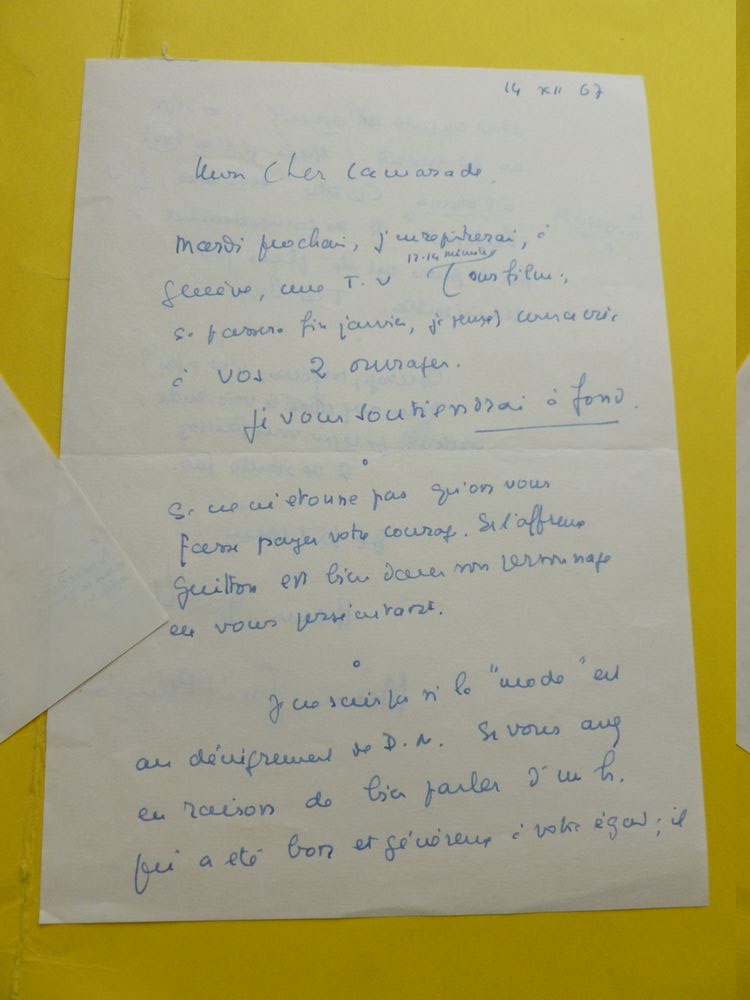 14 XII 67
Mon Cher Camarade,
mardi prochain, j'enregistrerai, à
12-14 minutes
Genève, une T.V (sur film;
ça passera fin janvier, je pense) consacrée
à vos 2 ouvrages.
Je vous soutiendrai à fond.
Ça ne m'étonne pas qu'on vous
fasse payer votre courage. Et l'affreux
Guitton est bien dans son personnage
en vous persécutant.
Je ne sais pas si la "mode" est
au dénigrement de D.R. Si vous avez
eu raison de bien parler d'un h.
qui a été bon et généreux à votre égard; il